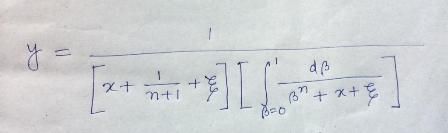 y = \frac{1}{\left[ x + \frac{1}{n+1} + \xi \right] \left[ \int_{\beta=0}^{1} \frac{d\beta}{\beta^n + x + \xi} \right]}